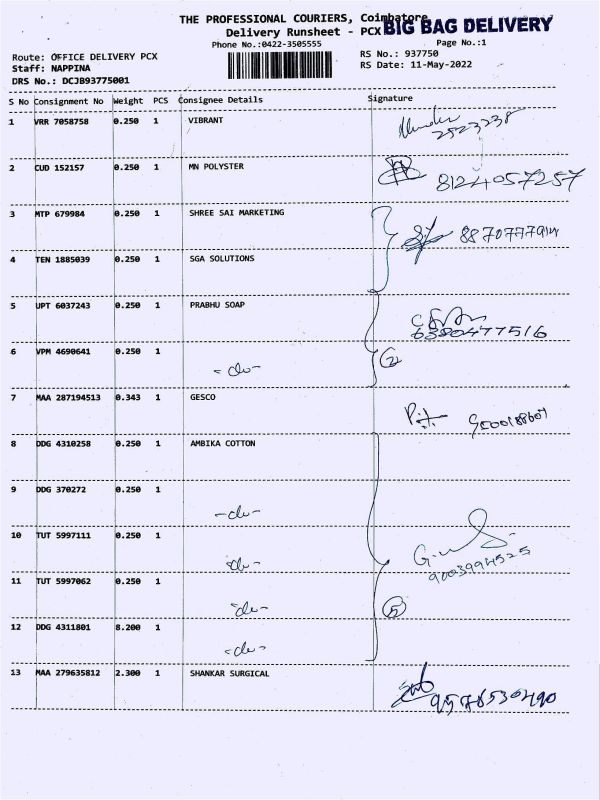 THE PROFESSIONAL COURIERS, Coimbatore
Delivery Runsheet - PCX BIG BAG DELIVERY
Phone No.:0422-3505555 Page No.:1
Route: OFFICE DELIVERY PCX RS No.: 937750
Staff: NAPPINA RS Date: 11-May-2022
DRS No.: DCJB93775001
S No Consignment No Weight PCS Consignee Details Signature
1 VRR 7058758 0.250 1 VIBRANT 2523238
2 CUD 152157 0.250 1 MN POLYSTER 8124057257
3 MTP 679984 0.250 1 SHREE SAI MARKETING 8870777914
4 TEN 1885039 0.250 1 SGA SOLUTIONS
5 UPT 6037243 0.250 1 PRABHU SOAP 6380477516
6 VPM 4690641 0.250 1 -do- 2
7 MAA 287194513 0.343 1 GESCO
8 DDG 4310258 0.250 1 AMBIKA COTTON
9 DDG 370272 0.250 1 -do-
10 TUT 5997111 0.250 1 -do- 9003994525
11 TUT 5997062 0.250 1 -do- 5
12 DDG 4311801 8.200 1 -do-
13 MAA 279635812 2.300 1 SHANKAR SURGICAL 9578530490